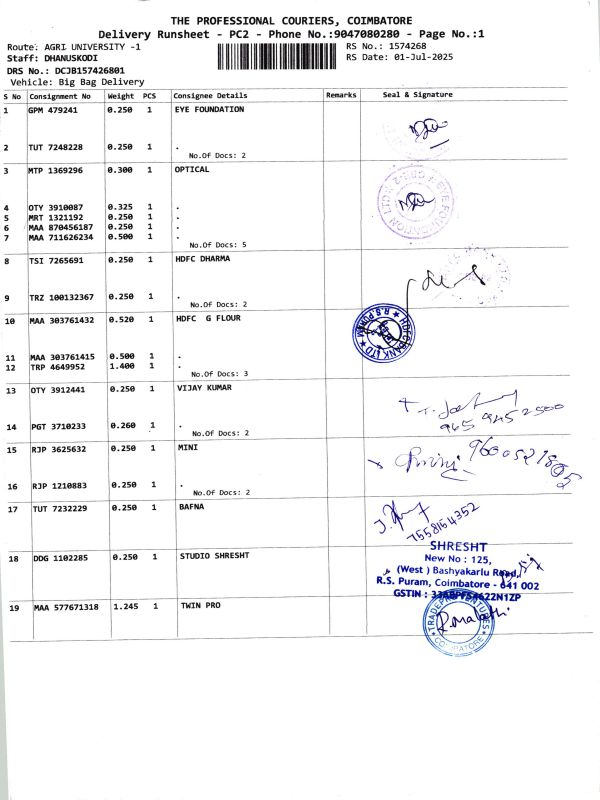 THE PROFESSIONAL COURIERS, COIMBATORE
Delivery Runsheet - PC2 - Phone No.:9047080280 - Page No.:1
Route: AGRI UNIVERSITY -1 RS No.: 1574268
Staff: DHANUSKODI RS Date: 01-Jul-2025
DRS No.: DCJB157426801
Vehicle: Big Bag Delivery
S No Consignment No Weight PCS Consignee Details Remarks Seal & Signature
1 GPM 479241 0.250 1 EYE FOUNDATION
2 TUT 7248228 0.250 1 .
No.Of Docs: 2
3 MTP 1369296 0.300 1 OPTICAL
4 OTY 3910087 0.325 1 .
5 MRT 1321192 0.250 1 .
6 MAA 870456187 0.250 1 .
7 MAA 711626234 0.500 1 .
No.Of Docs: 5
8 TSI 7265691 0.250 1 HDFC DHARMA
9 TRZ 100132367 0.250 1 .
No.Of Docs: 2
10 MAA 303761432 0.520 1 HDFC G FLOUR
HDFC BANK LTD ★ R.S.PURAM ★
11 MAA 303761415 0.500 1 .
12 TRP 4649952 1.400 1 .
No.Of Docs: 3
13 OTY 3912441 0.250 1 VIJAY KUMAR
965 9452500
14 PGT 3710233 0.260 1 .
No.Of Docs: 2
15 RJP 3625632 0.250 1 MINI
16 RJP 1210883 0.250 1 .
No.Of Docs: 2
17 TUT 7232229 0.250 1 BAFNA
7558164352
18 DDG 1102285 0.250 1 STUDIO SHRESHT
SHRESHT
New No : 125,
(West) Bashyakarlu Road,
R.S. Puram, Coimbatore - 641 002
GSTIN :
19 MAA 577671318 1.245 1 TWIN PRO
COIMBATORE